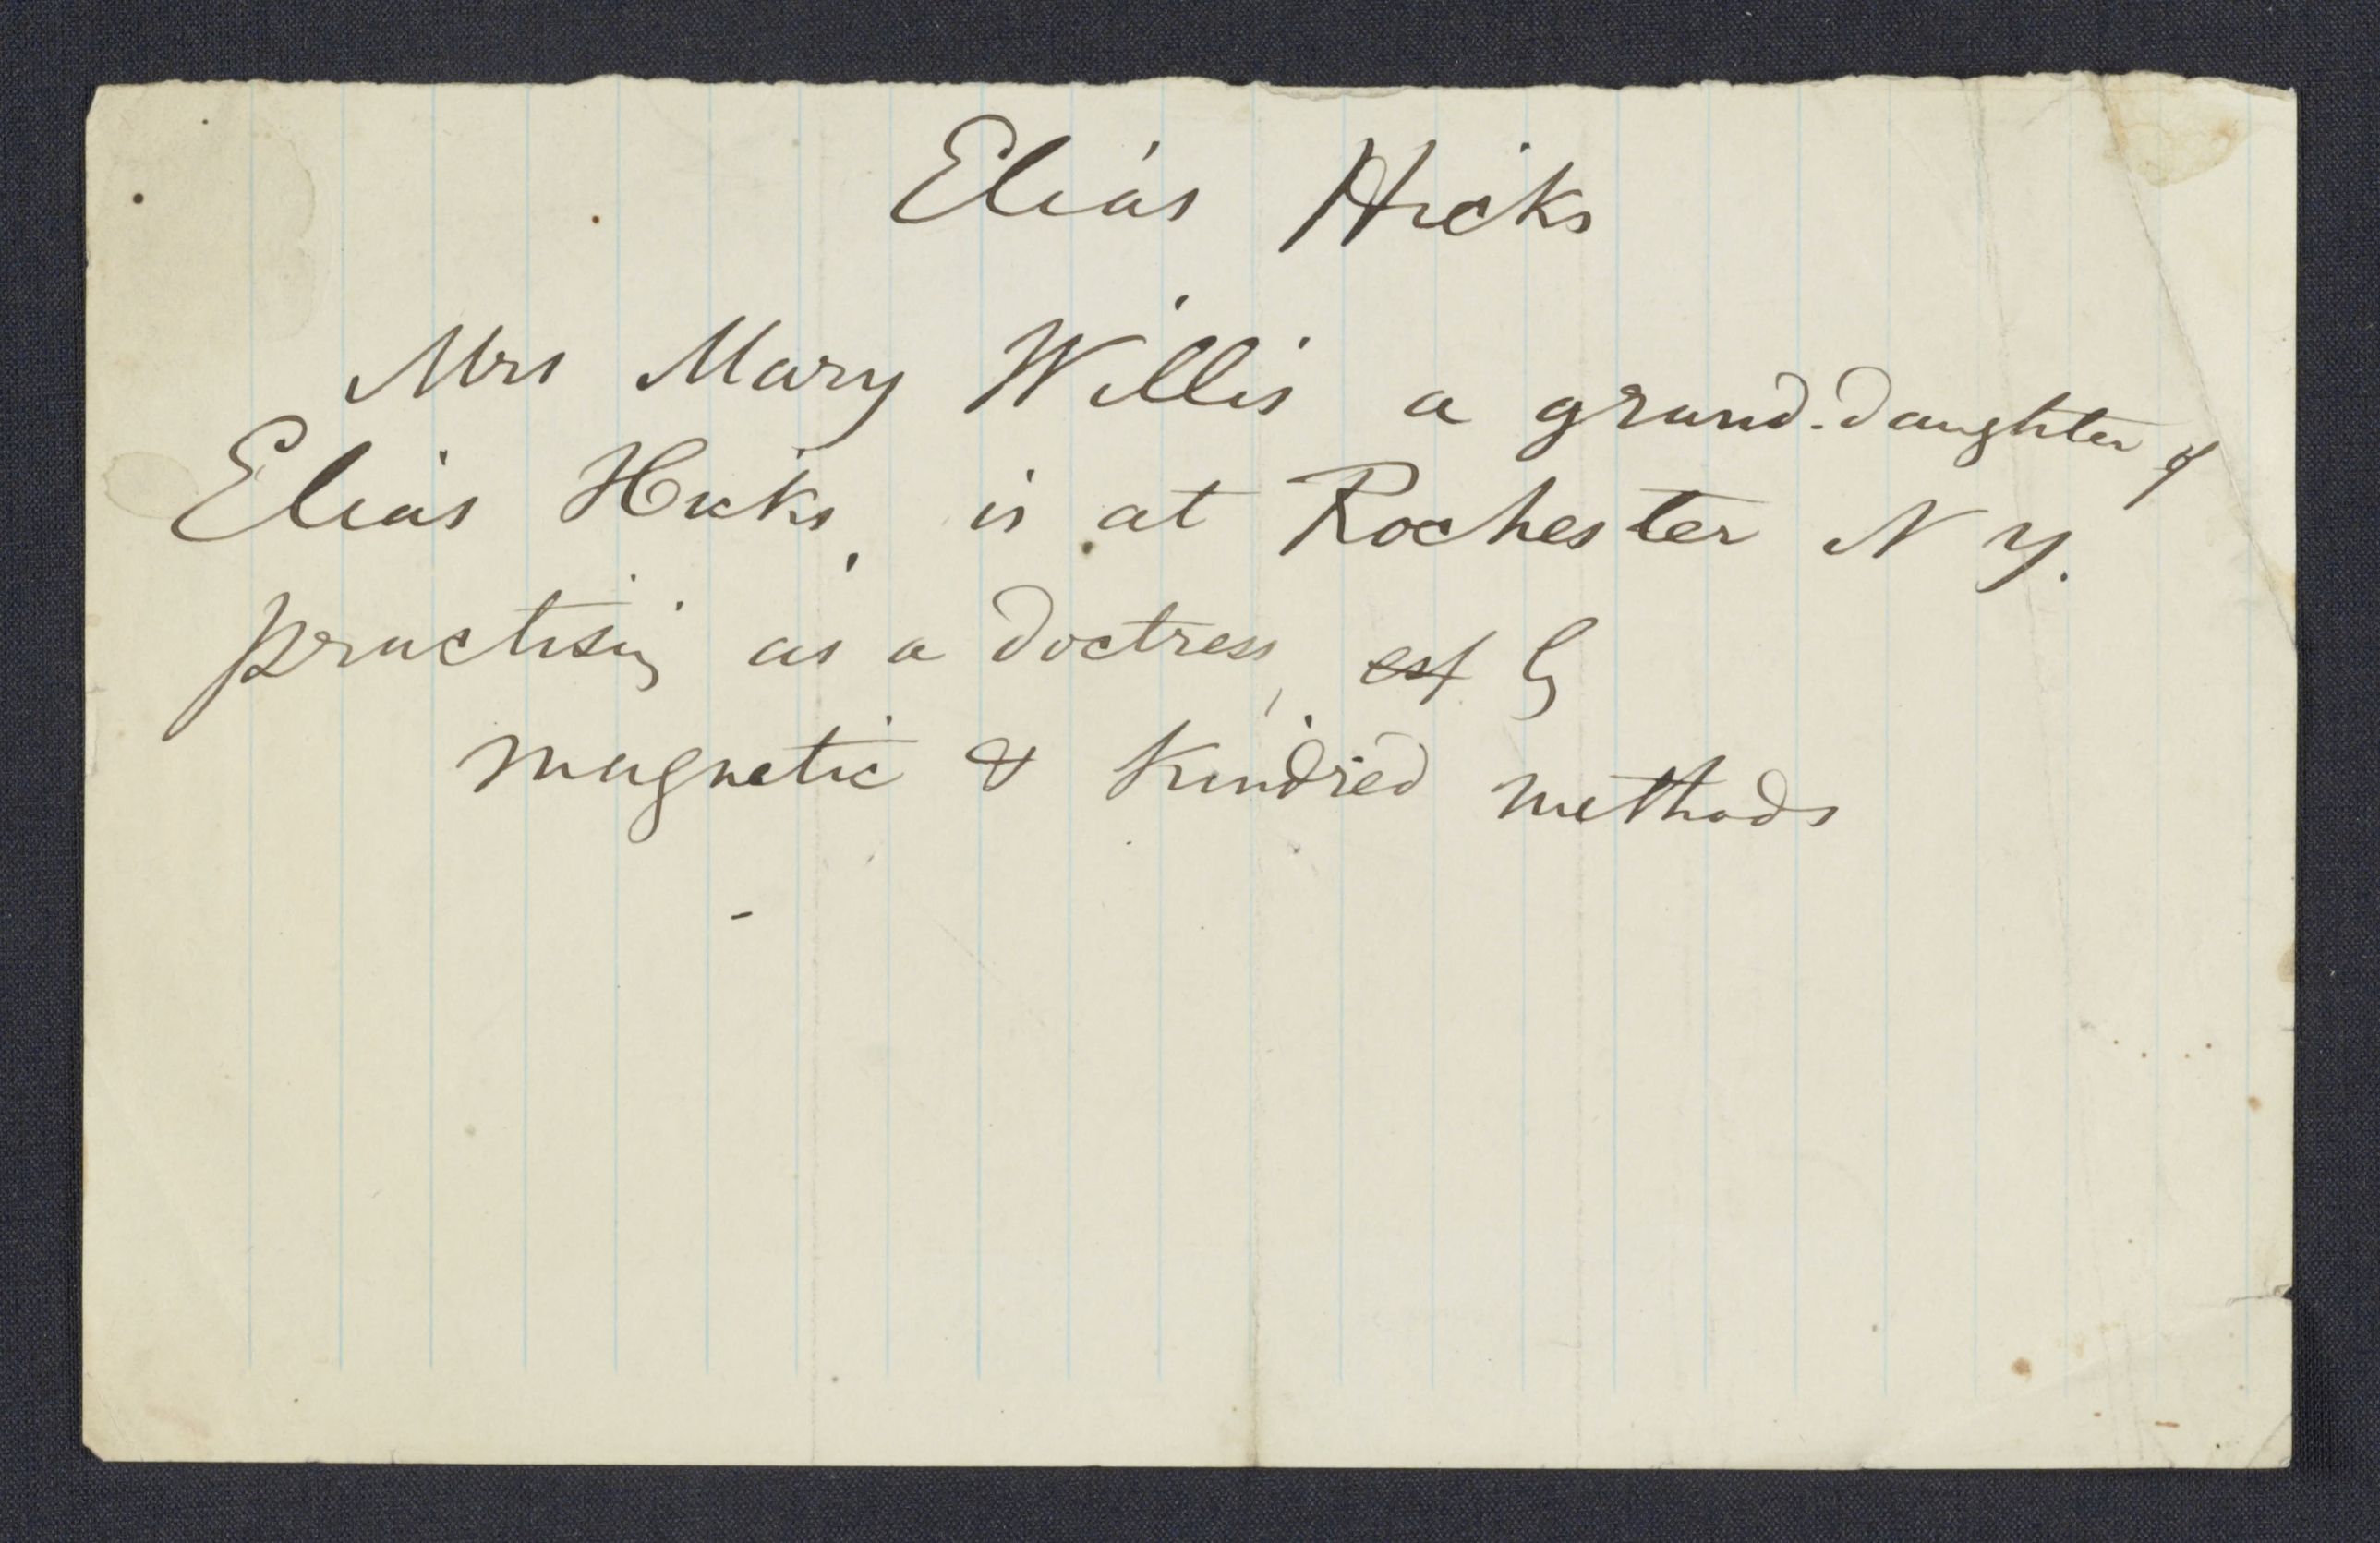 Elias Hicks
Mrs Mary Willis a grand-daughter of
Elias Hicks, is at Rochester N Y.
practising as a doctress, by
magnetic & kindred methods